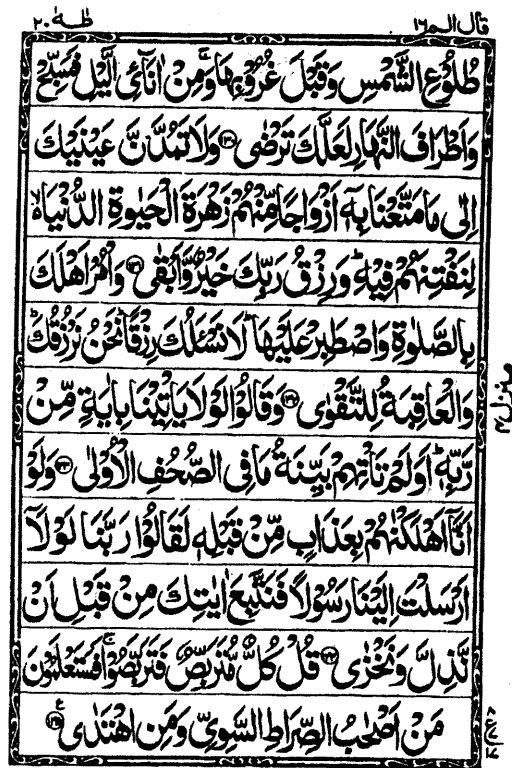 قال الم ١٦
طٰهٰ ٢٠
طُلُوْعِ الشَّمْسِ وَقَبْلَ غُرُوْبِهَا ۚ وَمِنْ اٰنَآئِ الَّيْلِ فَسَبِّحْ
وَاَطْرَافَ النَّهَارِ لَعَلَّكَ تَرْضٰى ۝١٣٠ وَلَا تَمُدَّنَّ عَيْنَيْكَ
اِلٰى مَا مَتَّعْنَا بِهٖٓ اَزْوَاجًا مِّنْهُمْ زَهْرَةَ الْحَيٰوةِ الدُّنْيَا ۙ
لِنَفْتِنَهُمْ فِيْهِ ؕ وَرِزْقُ رَبِّكَ خَيْرٌ وَّاَبْقٰى ۝١٣١ وَاْمُرْ اَهْلَكَ
بِالصَّلٰوةِ وَاصْطَبِرْ عَلَيْهَا ؕ لَا نَسْـَٔلُكَ رِزْقًا ؕ نَحْنُ نَرْزُقُكَ ؕ
وَالْعَاقِبَةُ لِلتَّقْوٰى ۝١٣٢ وَقَالُوْا لَوْلَا يَاْتِيْنَا بِاٰيَةٍ مِّنْ
رَّبِّهٖ ؕ اَوَلَمْ تَاْتِهِمْ بَيِّنَةُ مَا فِى الصُّحُفِ الْاُوْلٰى ۝١٣٣ وَلَوْ
اَنَّآ اَهْلَكْنٰهُمْ بِعَذَابٍ مِّنْ قَبْلِهٖ لَقَالُوْا رَبَّنَا لَوْلَآ
اَرْسَلْتَ اِلَيْنَا رَسُوْلًا فَنَتَّبِعَ اٰيٰتِكَ مِنْ قَبْلِ اَنْ
نَّذِلَّ وَنَخْزٰى ۝١٣٤ قُلْ كُلٌّ مُّتَرَبِّصٌ فَتَرَبَّصُوْا ۚ فَسَتَعْلَمُوْنَ
مَنْ اَصْحٰبُ الصِّرَاطِ السَّوِىِّ وَمَنِ اهْتَدٰى ۝١٣٥
منزل ٤